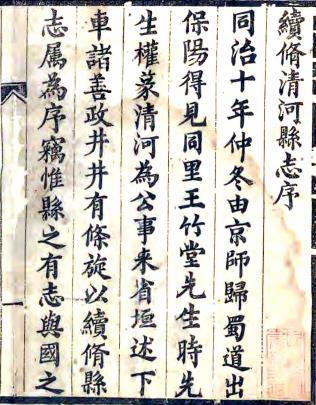 續脩清河縣志序
同治十年仲冬由京師歸蜀道出
保陽得見同里王竹堂先生時先
生權篆清河為公事来省垣述下
車諸善政井井有條旋以續脩縣
志属為序竊惟縣之有志與國之
一